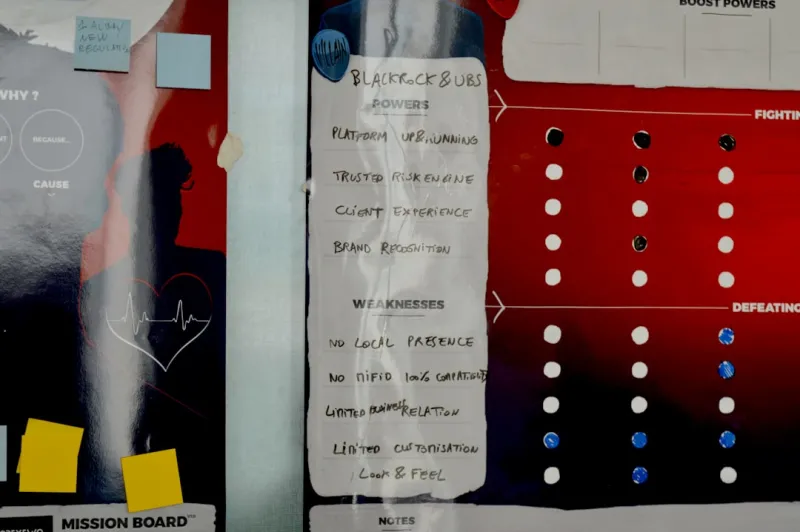 1 ALBAN
NEW
WHY ?
BECAUSE...
CAUSE
MISSION BOARD
VILLAIN
BLACKROCK & UBS
POWERS
PLATFORM UP & RUNNING
TRUSTED RISK ENGINE
CLIENT EXPERIENCE
BRAND RECOGNITION
WEAKNESSES
NO LOCAL PRESENCE
NO MIFID 100% COMPATIBLE
LIMITED BUSINESS RELATION
LIMITED CUSTOMISATION
LOOK & FEEL
NOTES
BOOST POWERS
FIGHTIN
DEFEATING